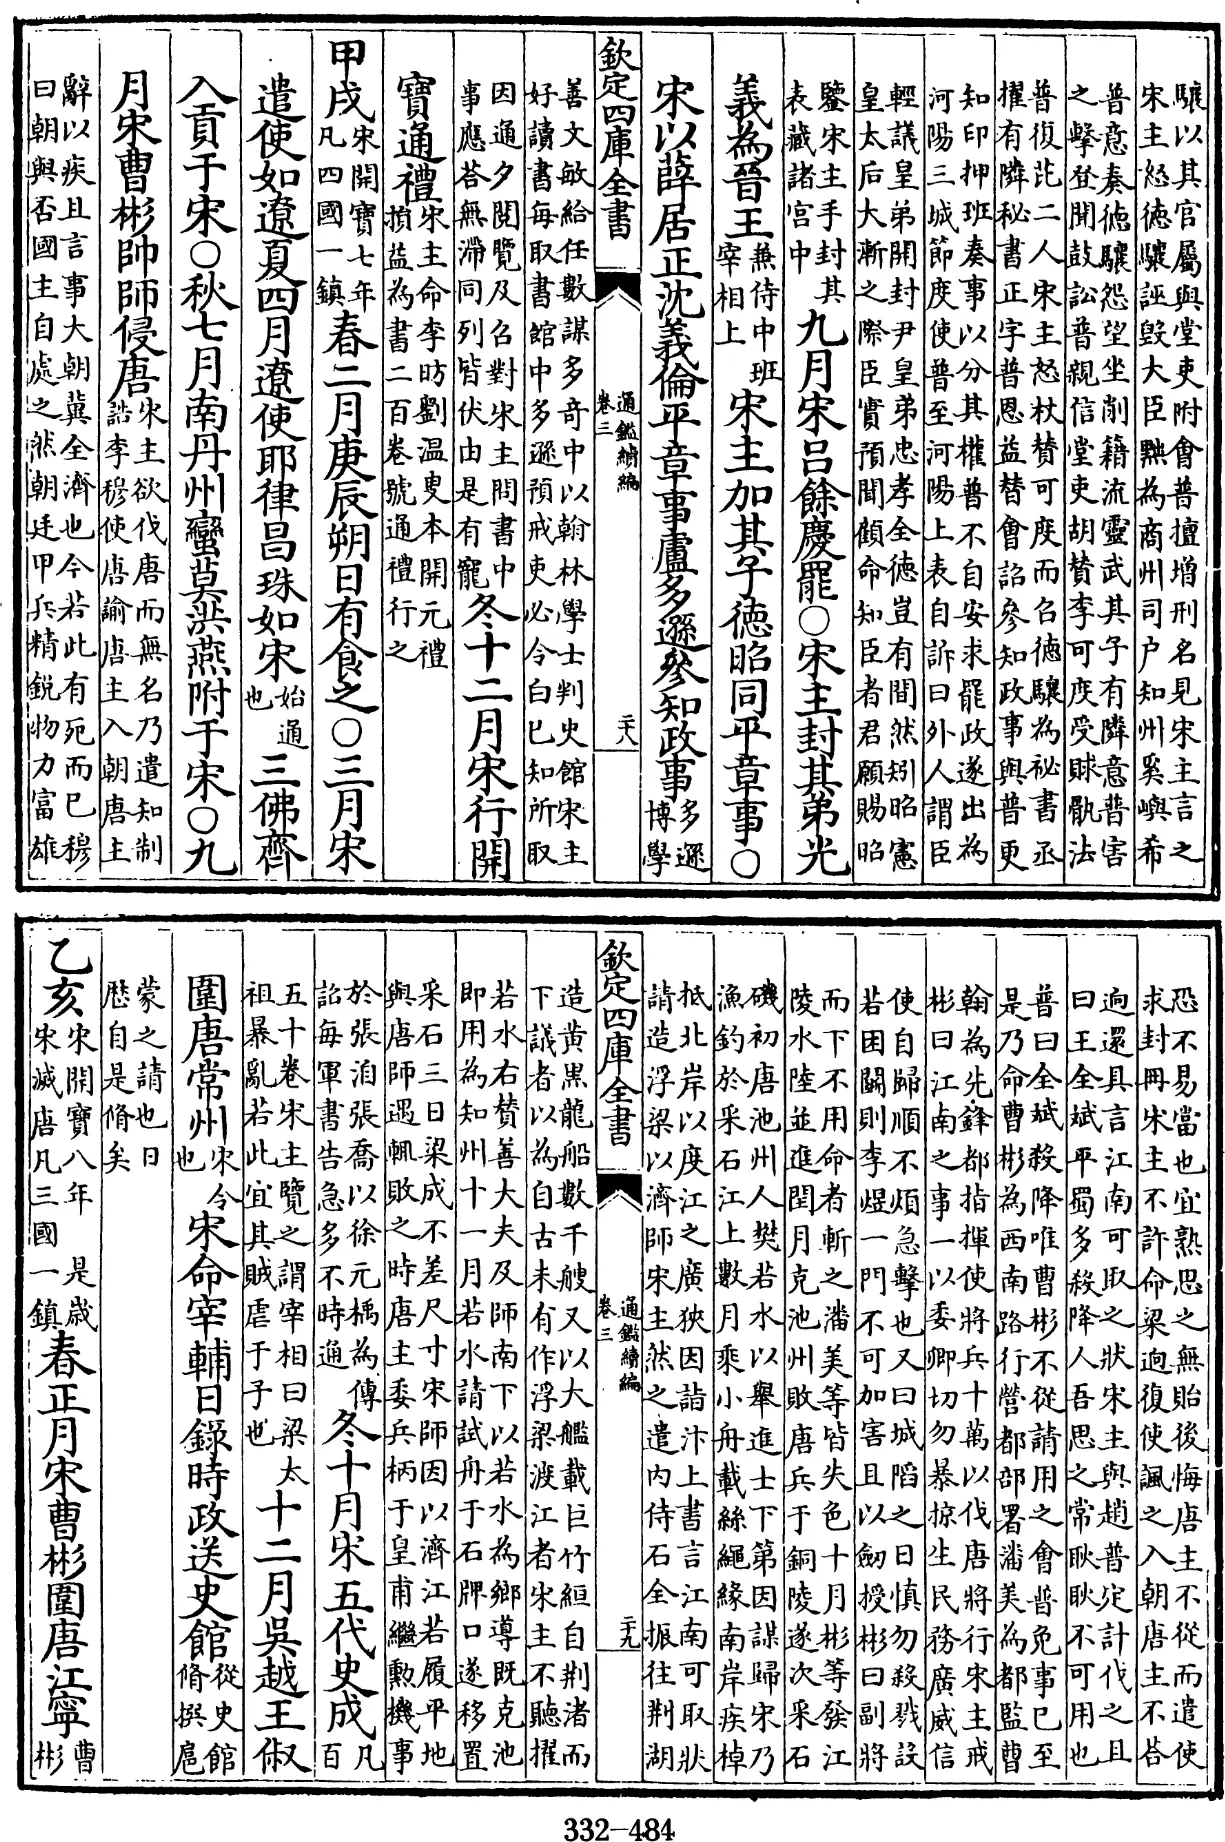 驤以其官屬與堂吏附會普擅增刑名見宋主言之
宋主怒德驤誣毀大臣黜為商州司户知州奚嶼希
普意奏德驤怨望坐削籍流靈武其子有隣意普害
之擊登聞鼓訟普親信堂吏胡賛李可度受賕骩法
普復庇二人宋主怒杖賛可度而召德驤為祕書丞
擢有隣秘書正字普恩益替會詔參知政事與普更
知印押班奏事以分其權普不自安求罷政遂出為
河陽三城節度使普至河陽上表自訴曰外人謂臣
輕議皇弟開封尹皇弟忠孝全德豈有間然矧昭憲
皇太后大漸之際臣實預聞顧命知臣者君願賜昭
鑒宋主手封其
表藏諸宮中
九月宋呂餘慶罷○宋主封其弟光
義為晉王
兼侍中班
宰相上
宋主加其子德昭同平章事○
宋以薛居正沈義倫平章事盧多遜參知政事
多遜
博學
欽定四庫全書
通鑑續編
卷三
二十八
善文敏給任數謀多奇中以翰林學士判史館宋主
好讀書每取書館中多遜預戒吏必令白已知所取
因通夕閱覽及召對宋主問書中
事應答無滯同列皆伏由是有寵
冬十二月宋行開
寶通禮
宋主命李昉劉温叟本開元禮
損益為書二百卷號通禮行之
甲戌
宋開寶七年
凡四國一鎮
春二月庚辰朔日有食之○三月宋
遣使如遼夏四月遼使耶律昌珠如宋
始通
也
三佛齊
入貢于宋○秋七月南丹州蠻莫洪燕附于宋○九
月宋曹彬帥師侵唐
宋主欲伐唐而無名乃遣知制
誥李穆使唐諭唐主入朝唐主
辭以疾且言事大朝冀全濟也今若此有死而已穆
曰朝與否國主自處之然朝廷甲兵精銳物力富雄
恐不易當也宜熟思之無貽後悔唐主不從而遣使
求封冊宋主不許命梁逈復使諷之入朝唐主不答
逈還具言江南可取之狀宋主與趙普定計伐之且
曰王全斌平蜀多殺降人吾思之常耿耿不可用也
普曰全斌殺降唯曹彬不從請用之會普免事已至
是乃命曹彬為西南路行營都部署潘美為都監曹
翰為先鋒都指揮使將兵十萬以伐唐將行宋主戒
彬曰江南之事一以委卿切勿暴掠生民務廣威信
使自歸順不煩急擊也又曰城陷之日慎勿殺戮設
若困鬭則李煜一門不可加害且以劒授彬曰副將
而下不用命者斬之潘美等皆失色十月彬等發江
陵水陸並進閏月克池州敗唐兵于銅陵遂次采石
磯初唐池州人樊若水以舉進士下第因謀歸宋乃
漁釣於采石江上數月乘小舟載絲繩緣南岸疾棹
抵北岸以度江之廣狹因詣汴上書言江南可取狀
請造浮梁以濟師宋主然之遣内侍石全振往荆湖
欽定四庫全書
通鑑續編
卷三
二十九
造黄黑龍船數千艘又以大艦載巨竹絙自荆渚而
下議者以為自古未有作浮梁渡江者宋主不聽擢
若水右賛善大夫及師南下以若水為鄉導既克池
即用為知州十一月若水請試舟于石牌口遂移置
采石三日梁成不差尺寸宋師因以濟江若履平地
與唐師遇輒敗之時唐主委兵柄于皇甫繼勳機事
於張洎張喬以徐元楀為傳
詔每軍書告急多不時通
冬十月宋五代史成
凡
百
五十卷宋主覽之謂宰相曰梁太
祖暴亂若此宜其賊虐于子也
十二月吳越王俶
圍唐常州
宋令
也
宋命宰輔日錄時政送史館
從史館
脩撰扈
蒙之請也日
歴自是脩矣
乙亥
宋開寶八年 是歲
宋滅唐凡三國一鎮
春正月宋曹彬圍唐江寧
曹
彬
332-484